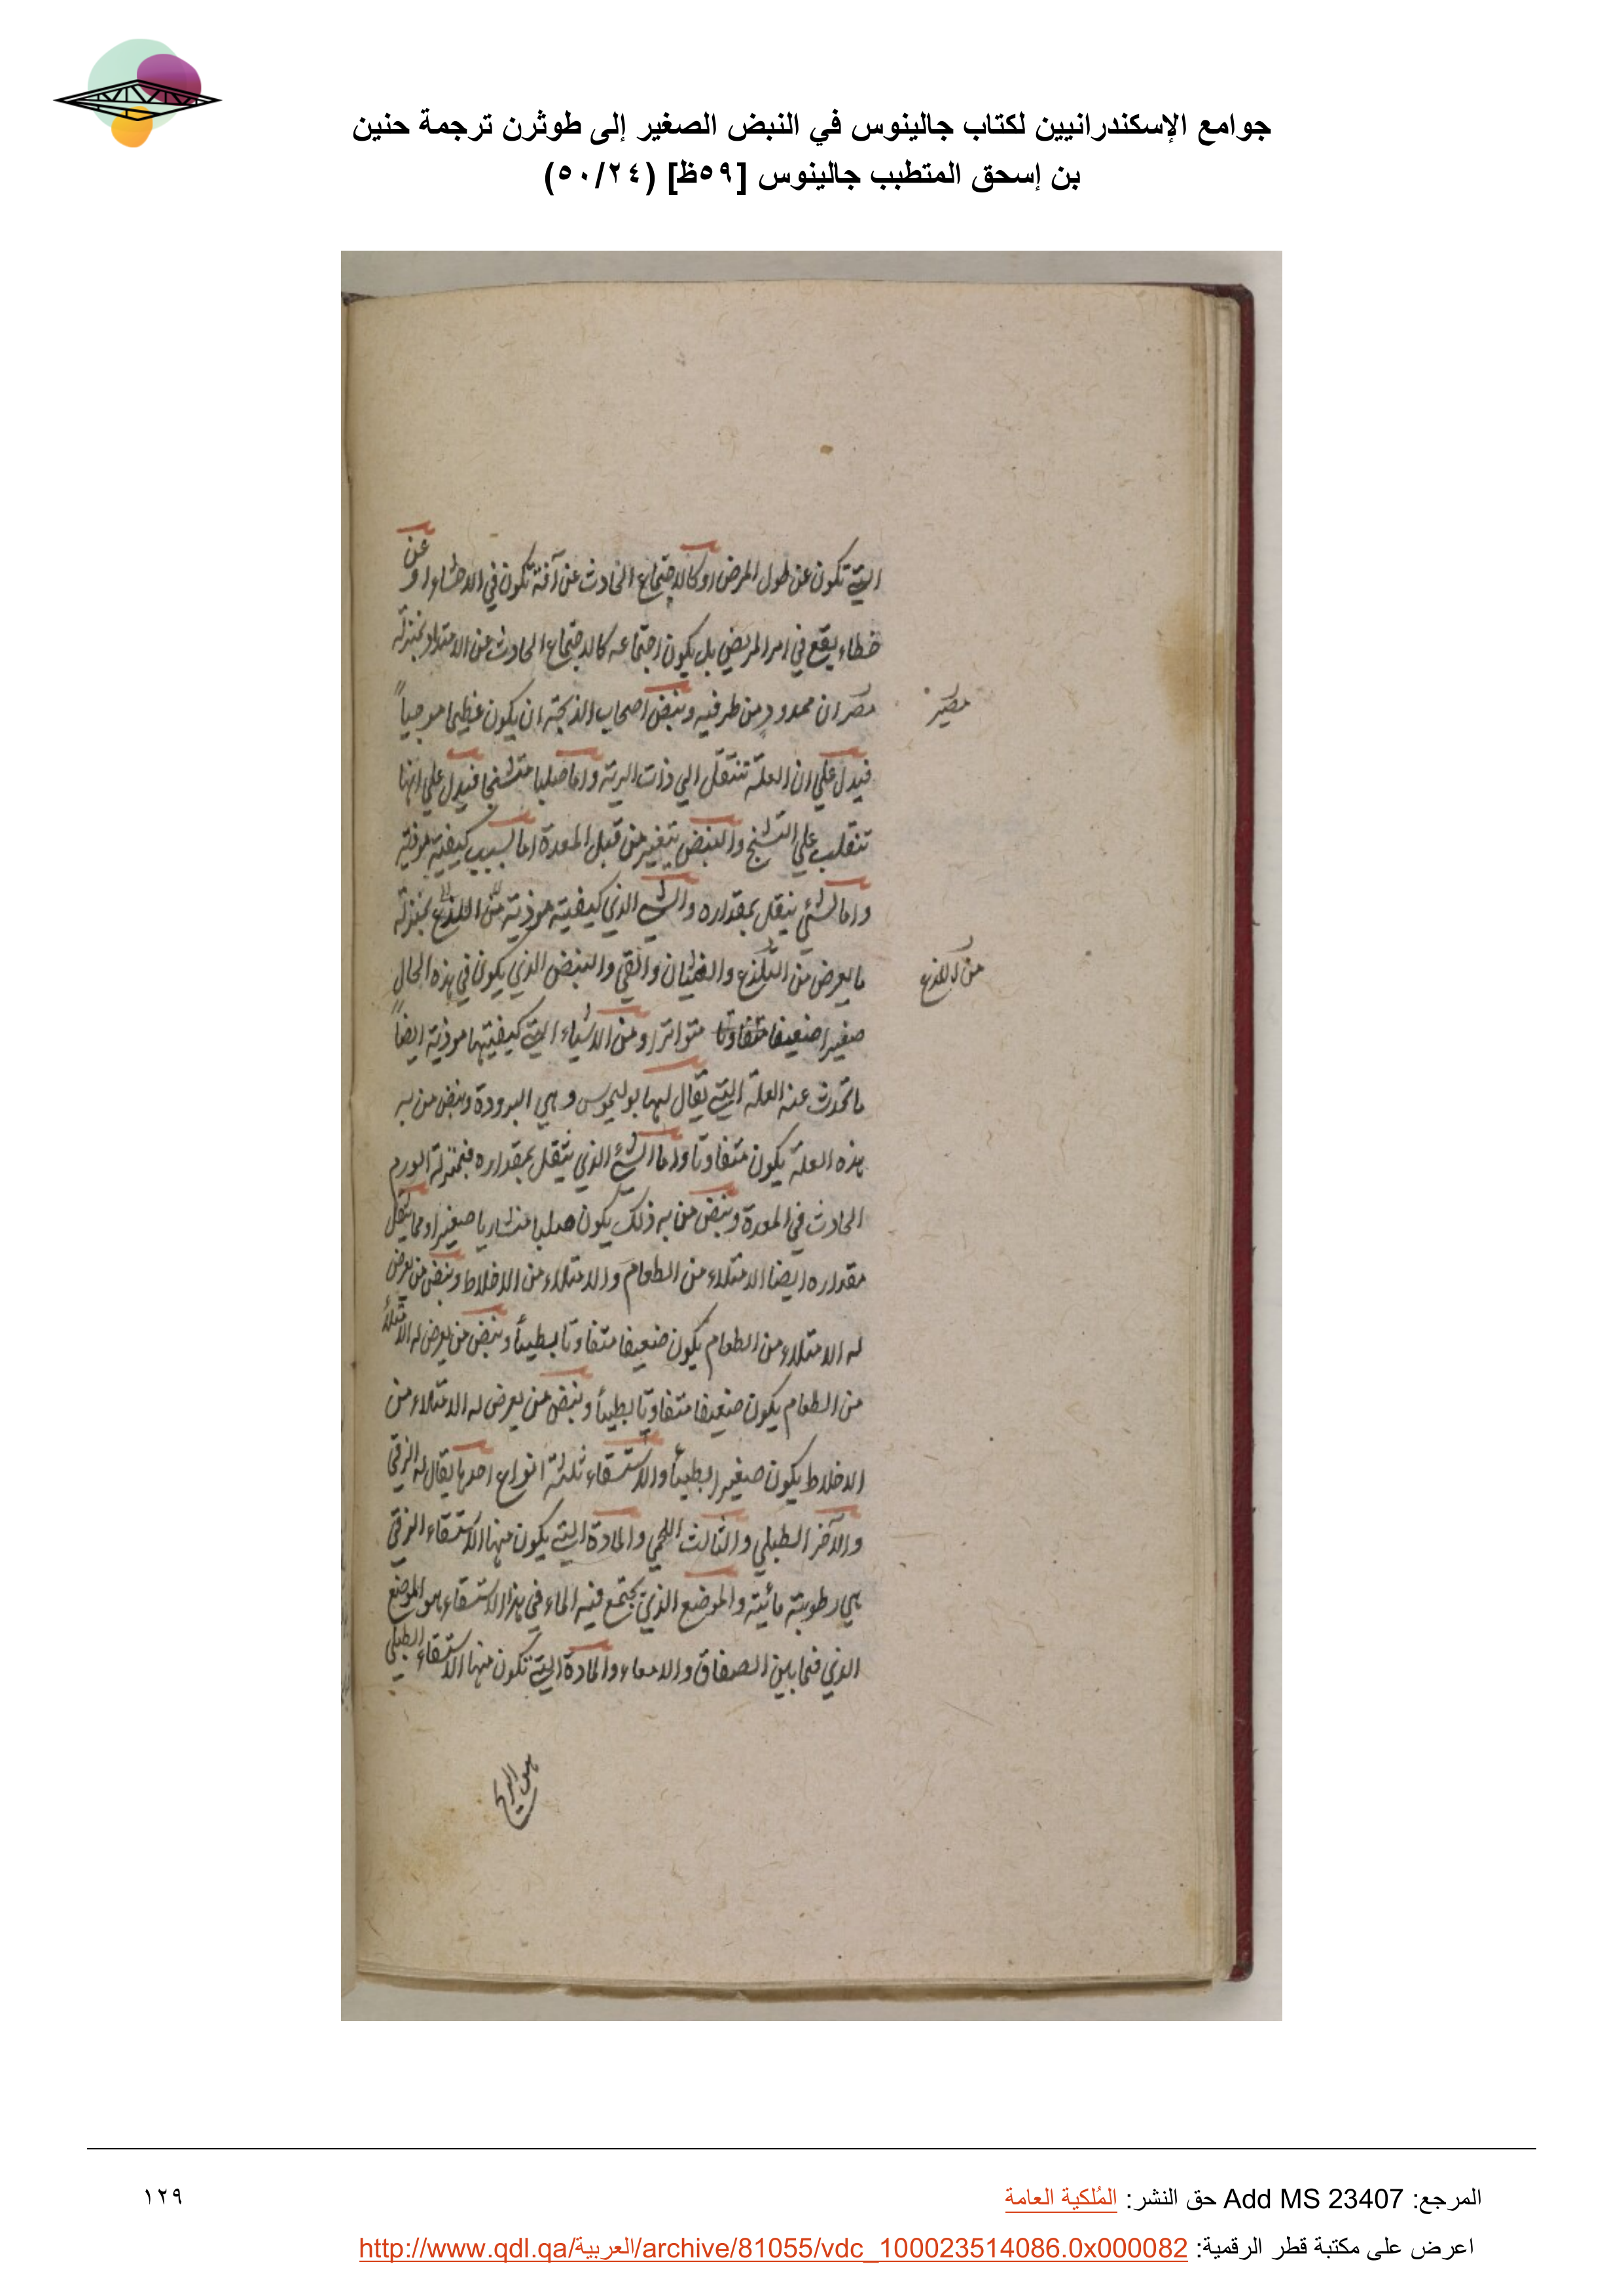 جوامع الإسكندرانيين لكتاب جالينوس في النبض الصغير إلى طوثرن ترجمة حنين
بن إسحق المتطبب جالينوس [٥٩ظ] (٥٠/٢٤)
التي تكون عن طول المرض او كالاجتماع الحادث عن آفة تكون في الاحشاء او عن
خطاء يقع في امر المريض بل يكون اجتماعه كالاجتماع الحادث عن الامتداد بمنزلة
مصران ممدود من طرفيه ونبض اصحاب الذبحة ان يكون عظيما موجياً
مصير
فيدل علي ان العلة تنتقل الي ذات الرية واما صلبا متشنجا فيدل علي انها
تنقلب علي التشنج والنبض يتغير من قبل المعدة اما لسبب كيفية موذية
واما لشئ يثقل بمقداره والشي الذي كيفيته موذية من اللذع بمنزلة
ما يعرض من التلذع والغثيان والقي والنبض الذي يكون في هذه الحال
من اللذع
صغيرا ضعيفا متفاوتا متواترا ومن الاشياء التي كيفيتها موذية ايضاً
ما تحدث عنه العلة التي يقال لها بوليموس وهي البرودة ونبض من به
هذه العلة يكون متفاوتا واما الشئ الذي يثقل بمقداره فبمنزلة الورم
الحادث في المعدة ونبض من به ذلك يكون صلبا منشاريا صغيرا ومما يثقل
مقداره ايضا الامتلاء من الطعام والامتلاء من الاخلاط ونبض من يعرض
له الامتلاء من الطعام يكون ضعيفا متفاوتا بطيئاً ونبض من يعرض له الامتلاء
من الطعام يكون ضعيفا متفاوتا بطيئاً ونبض من يعرض له الامتلاء من
الاخلاط يكون صغيرا بطيئاً والاستسقاء ثلثة انواع احدها يقال له الزقي
والآخر الطبلي والثالث اللحمي والمادة التي يكون منها الاستسقاء الزقي
هي رطوبة مائية والموضع الذي يجتمع فيه الماء في هذا الاستسقاء هو الموضع
الذي فيما بين الصفاق والامعاء والمادة التي تكون منها الاستسقاء الطبلي
هو الريح
المرجع: Add MS 23407 حق النشر: المُلكية العامة
١٢٩
اعرض على مكتبة قطر الرقمية: http://www.qdl.qa/العربية/archive/81055/vdc_100023514086.0x000082